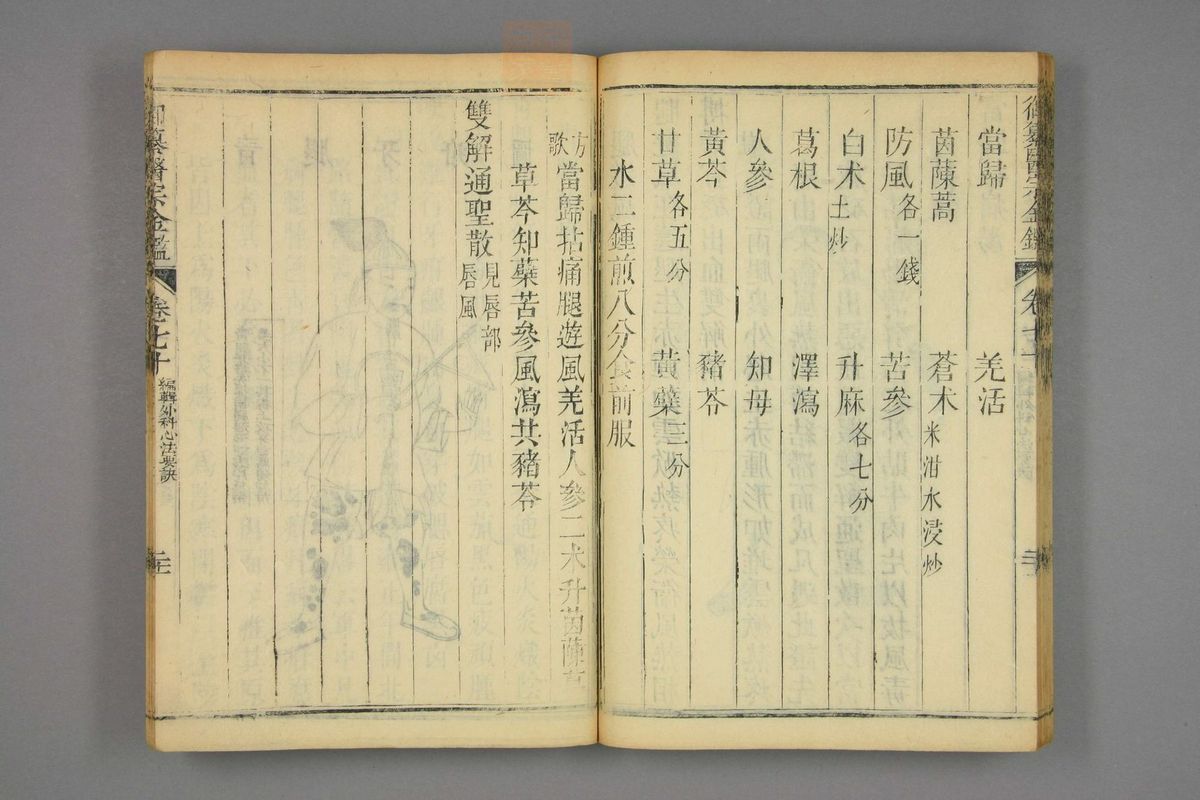 御纂醫宗金鑑 卷七十
當歸 羌活
茵蔯蒿 蒼朮米泔水浸炒
防風各一錢 苦參
白朮土炒 升麻各七分
葛根 澤瀉
人參 知母
黃芩 豬苓
甘草各五分 黃蘗三分
水二鍾煎八分食前服
方歌 當歸拈痛腿遊風羌活人參二朮升茵蔯葛
草芩知蘗苦參風瀉共豬苓
雙解通聖散見唇部唇風
御纂醫宗金鑑 卷七十 編輯外科心法要訣